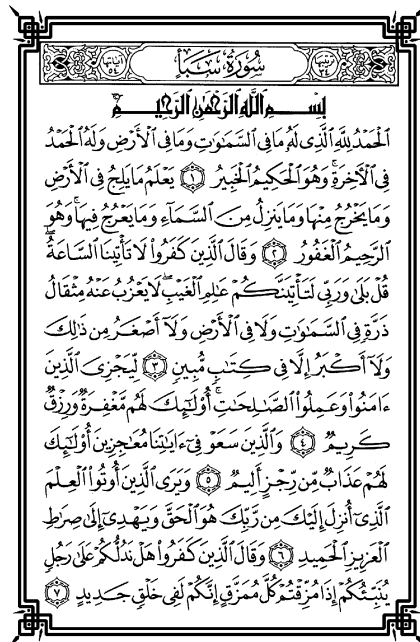 ترتيبها ٣٤ سُورَةُ سَبَأٍ آياتها ٥٤
بِسْمِ اللَّهِ الرَّحْمَٰنِ الرَّحِيمِ
ٱلْحَمْدُ لِلَّهِ ٱلَّذِى لَهُۥ مَا فِى ٱلسَّمَٰوَٰتِ وَمَا فِى ٱلْأَرْضِ وَلَهُ ٱلْحَمْدُ
فِى ٱلْءَاخِرَةِ ۚ وَهُوَ ٱلْحَكِيمُ ٱلْخَبِيرُ ١ يَعْلَمُ مَا يَلِجُ فِى ٱلْأَرْضِ
وَمَا يَخْرُجُ مِنْهَا وَمَا يَنزِلُ مِنَ ٱلسَّمَآءِ وَمَا يَعْرُجُ فِيهَا ۚ وَهُوَ
ٱلرَّحِيمُ ٱلْغَفُورُ ٢ وَقَالَ ٱلَّذِينَ كَفَرُوا۟ لَا تَأْتِينَا ٱلسَّاعَةُ ۖ
قُلْ بَلَىٰ وَرَبِّى لَتَأْتِيَنَّكُمْ عَٰلِمِ ٱلْغَيْبِ ۖ لَا يَعْزُبُ عَنْهُ مِثْقَالُ
ذَرَّةٍ فِى ٱلسَّمَٰوَٰتِ وَلَا فِى ٱلْأَرْضِ وَلَآ أَصْغَرُ مِن ذَٰلِكَ
وَلَآ أَكْبَرُ إِلَّا فِى كِتَٰبٍ مُّبِينٍ ٣ لِّيَجْزِىَ ٱلَّذِينَ
ءَامَنُوا۟ وَعَمِلُوا۟ ٱلصَّٰلِحَٰتِ ۚ أُو۟لَٰٓئِكَ لَهُم مَّغْفِرَةٌ وَرِزْقٌ
كَرِيمٌ ٤ وَٱلَّذِينَ سَعَوْ فِىٓ ءَايَٰتِنَا مُعَٰجِزِينَ أُو۟لَٰٓئِكَ
لَهُمْ عَذَابٌ مِّن رِّجْزٍ أَلِيمٌ ٥ وَيَرَى ٱلَّذِينَ أُوتُوا۟ ٱلْعِلْمَ
ٱلَّذِىٓ أُنزِلَ إِلَيْكَ مِن رَّبِّكَ هُوَ ٱلْحَقَّ وَيَهْدِىٓ إِلَىٰ صِرَٰطِ
ٱلْعَزِيزِ ٱلْحَمِيدِ ٦ وَقَالَ ٱلَّذِينَ كَفَرُوا۟ هَلْ نَدُلُّكُمْ عَلَىٰ رَجُلٍ
يُنَبِّئُكُمْ إِذَا مُزِّقْتُمْ كُلَّ مُمَزَّقٍ إِنَّكُمْ لَفِى خَلْقٍ جَدِيدٍ ٧